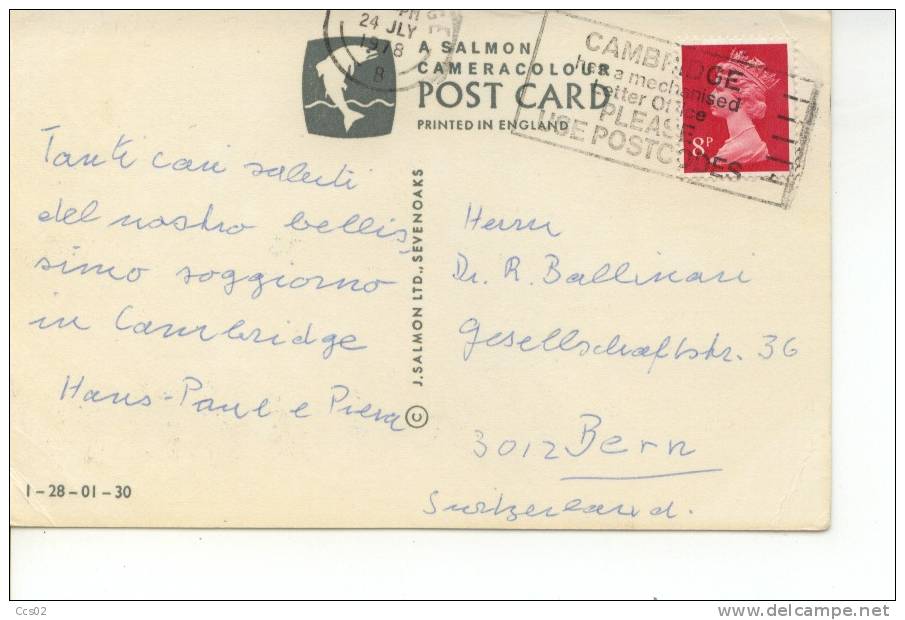 PM
24 JLY
1978
B
A SALMON
CAMERACOLOUR
POST CARD
PRINTED IN ENGLAND
CAMBRIDGE
has a mechanised
Letter Office
PLEASE
USE POSTCODES
8P
Tanti cari saluti
del nostro bellis
simo soggiorno
in Cambridge
Hans-Paul e Piera
© J. SALMON LTD., SEVENOAKS
Herrn
Dr. R. Ballinari
Gesellschaftstr. 36
3012 Bern
Switzerland.
1-28-01-30
Ccs02
delcampe.net